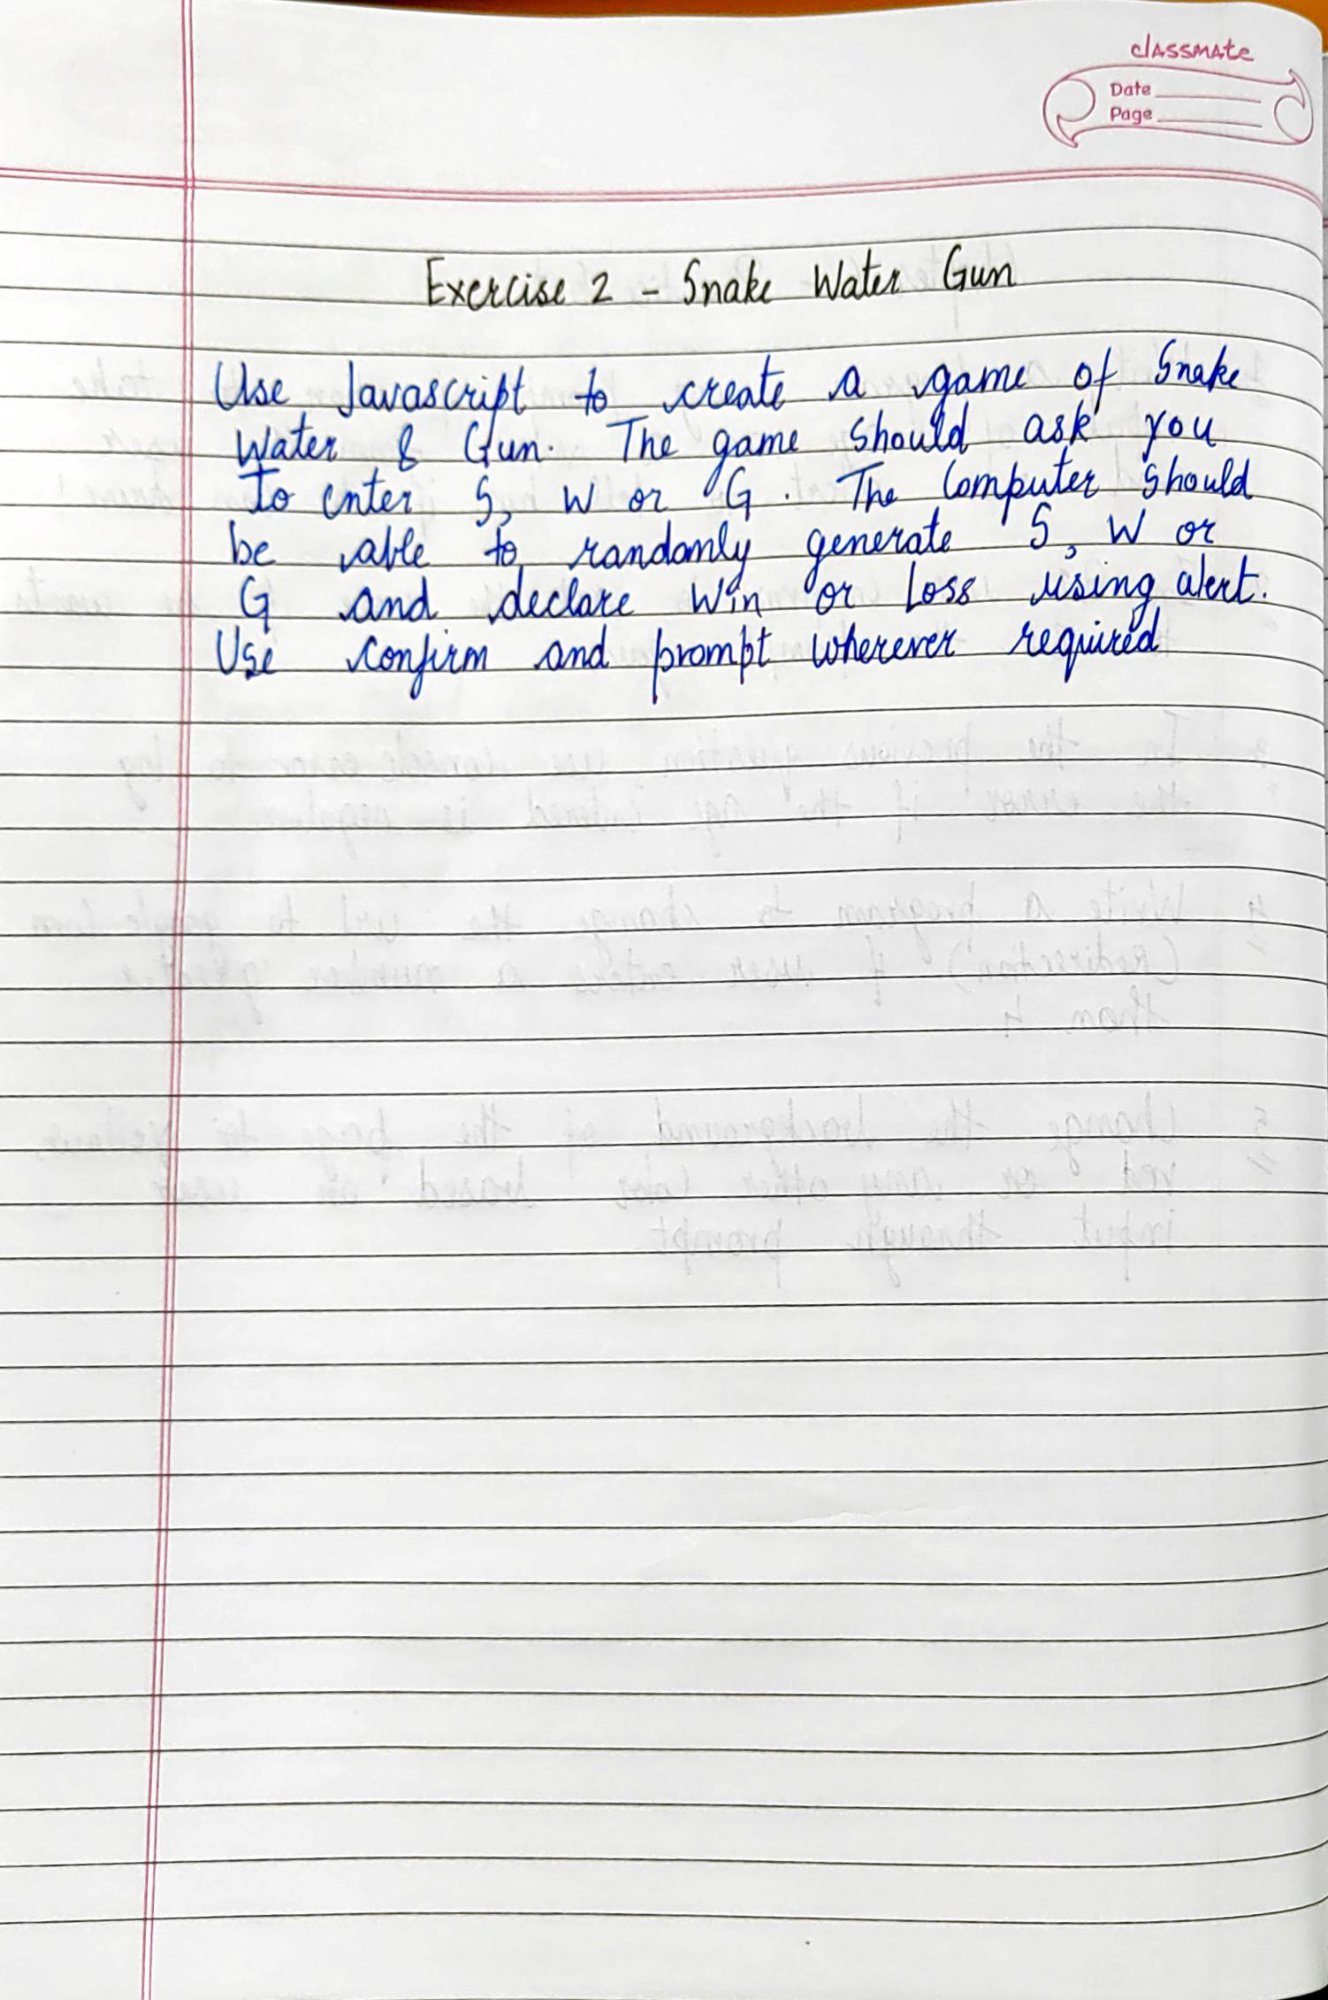 classmate
Date
Page
Exercise 2 - Snake Water Gun
Use Javascript to create a game of Snake
Water & Gun. The game should ask you
to enter S, W or G. The Computer should
be able to randomly generate S, W or
G and declare Win or Loss using alert.
Use confirm and prompt wherever required